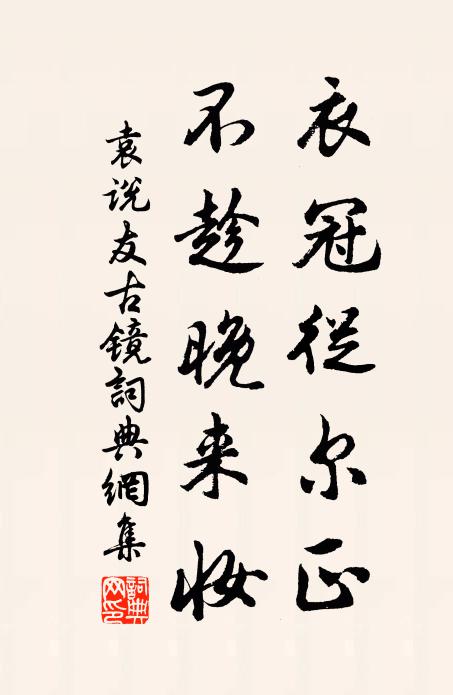 衣冠從尔正
不趁晚来妆
袁说友古镜詞典網集
詞典网印